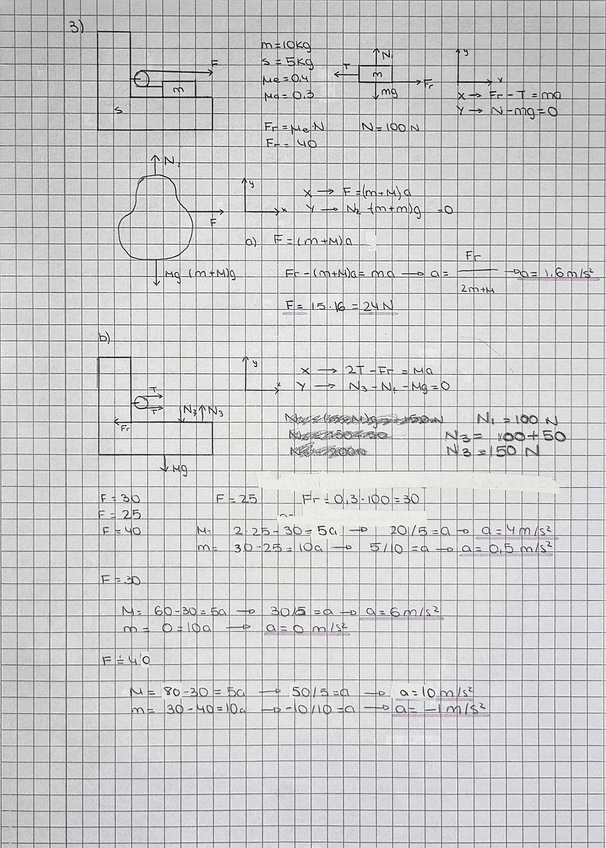 3)
F
m
s
m=10kg
s = 5kg
μe=0.4
μd=0.3
Fr=μe·N N=100N
Fr= 40
N
T m Fr
mg
y
x
X → Fr-T=ma
Y → N-mg=0
N.
F
Mg (m+M)g
y
x
X → F=(m+M)a
Y → N2-(m+m)g =0
a) F=(m+M)a
Fr-(m+M)a= ma → a= Fr/2m+M → a= 1.6m/s²
F= 15.16 = 24N
b)
T
T
Fr
N2 N3
Mg
y
x
X → 2T-Fr=Ma
Y → N3-N1-Mg=0
N1=100 N
N3= 100+50
N3=150 N
F=30 F=25 Fr=0,3·100=30
F=25
F=40 M= 2·25-30=5a → 20/5=a → a=4m/s²
m= 30-25=10a → 5/10=a → a=0,5m/s²
F=30
M= 60-30=5a → 30/5=a → a=6m/s²
m= 0=10a → a=0 m/s²
F=40
M= 80-30=5a → 50/5=a → a=10m/s²
m= 30-40=10a → -10/10=a → a=-1m/s²